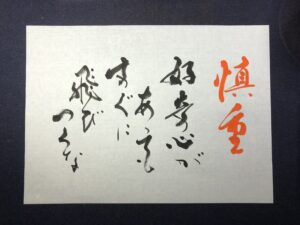 慎重
好奇心が
あっても
すぐに
飛び
つくな